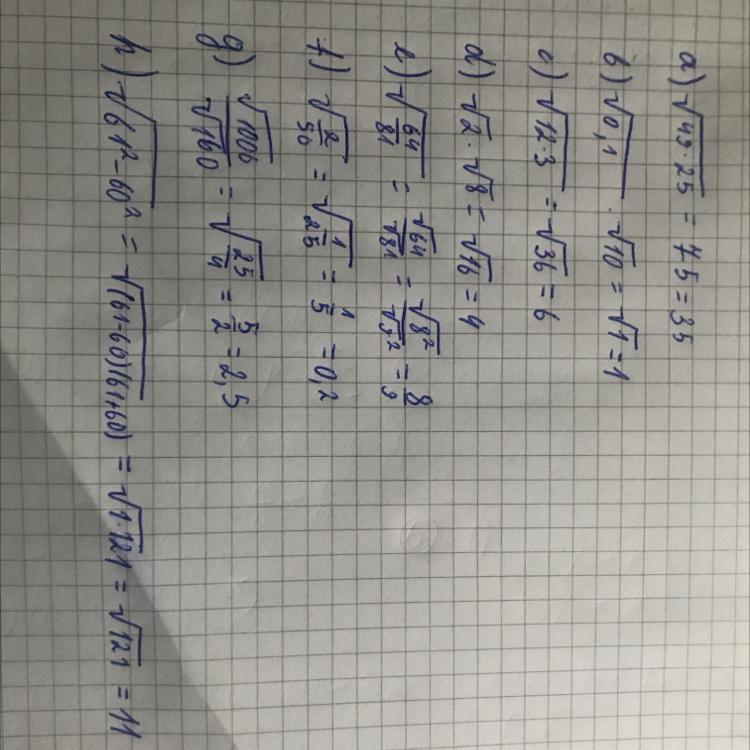 a) √49·25 = 7·5 = 35
b) √0,1 · √10 = √1 = 1
c) √12·3 = √36 = 6
d) √2 · √8 = √16 = 4
e) √64/81 = √64/√81 = √8²/√9² = 8/9
f) √2/50 = √1/25 = 1/5 = 0,2
g) √1000/√160 = √25/4 = 5/2 = 2,5
h) √61²-60² = √(61-60)(61+60) = √1·121 = √121 = 11